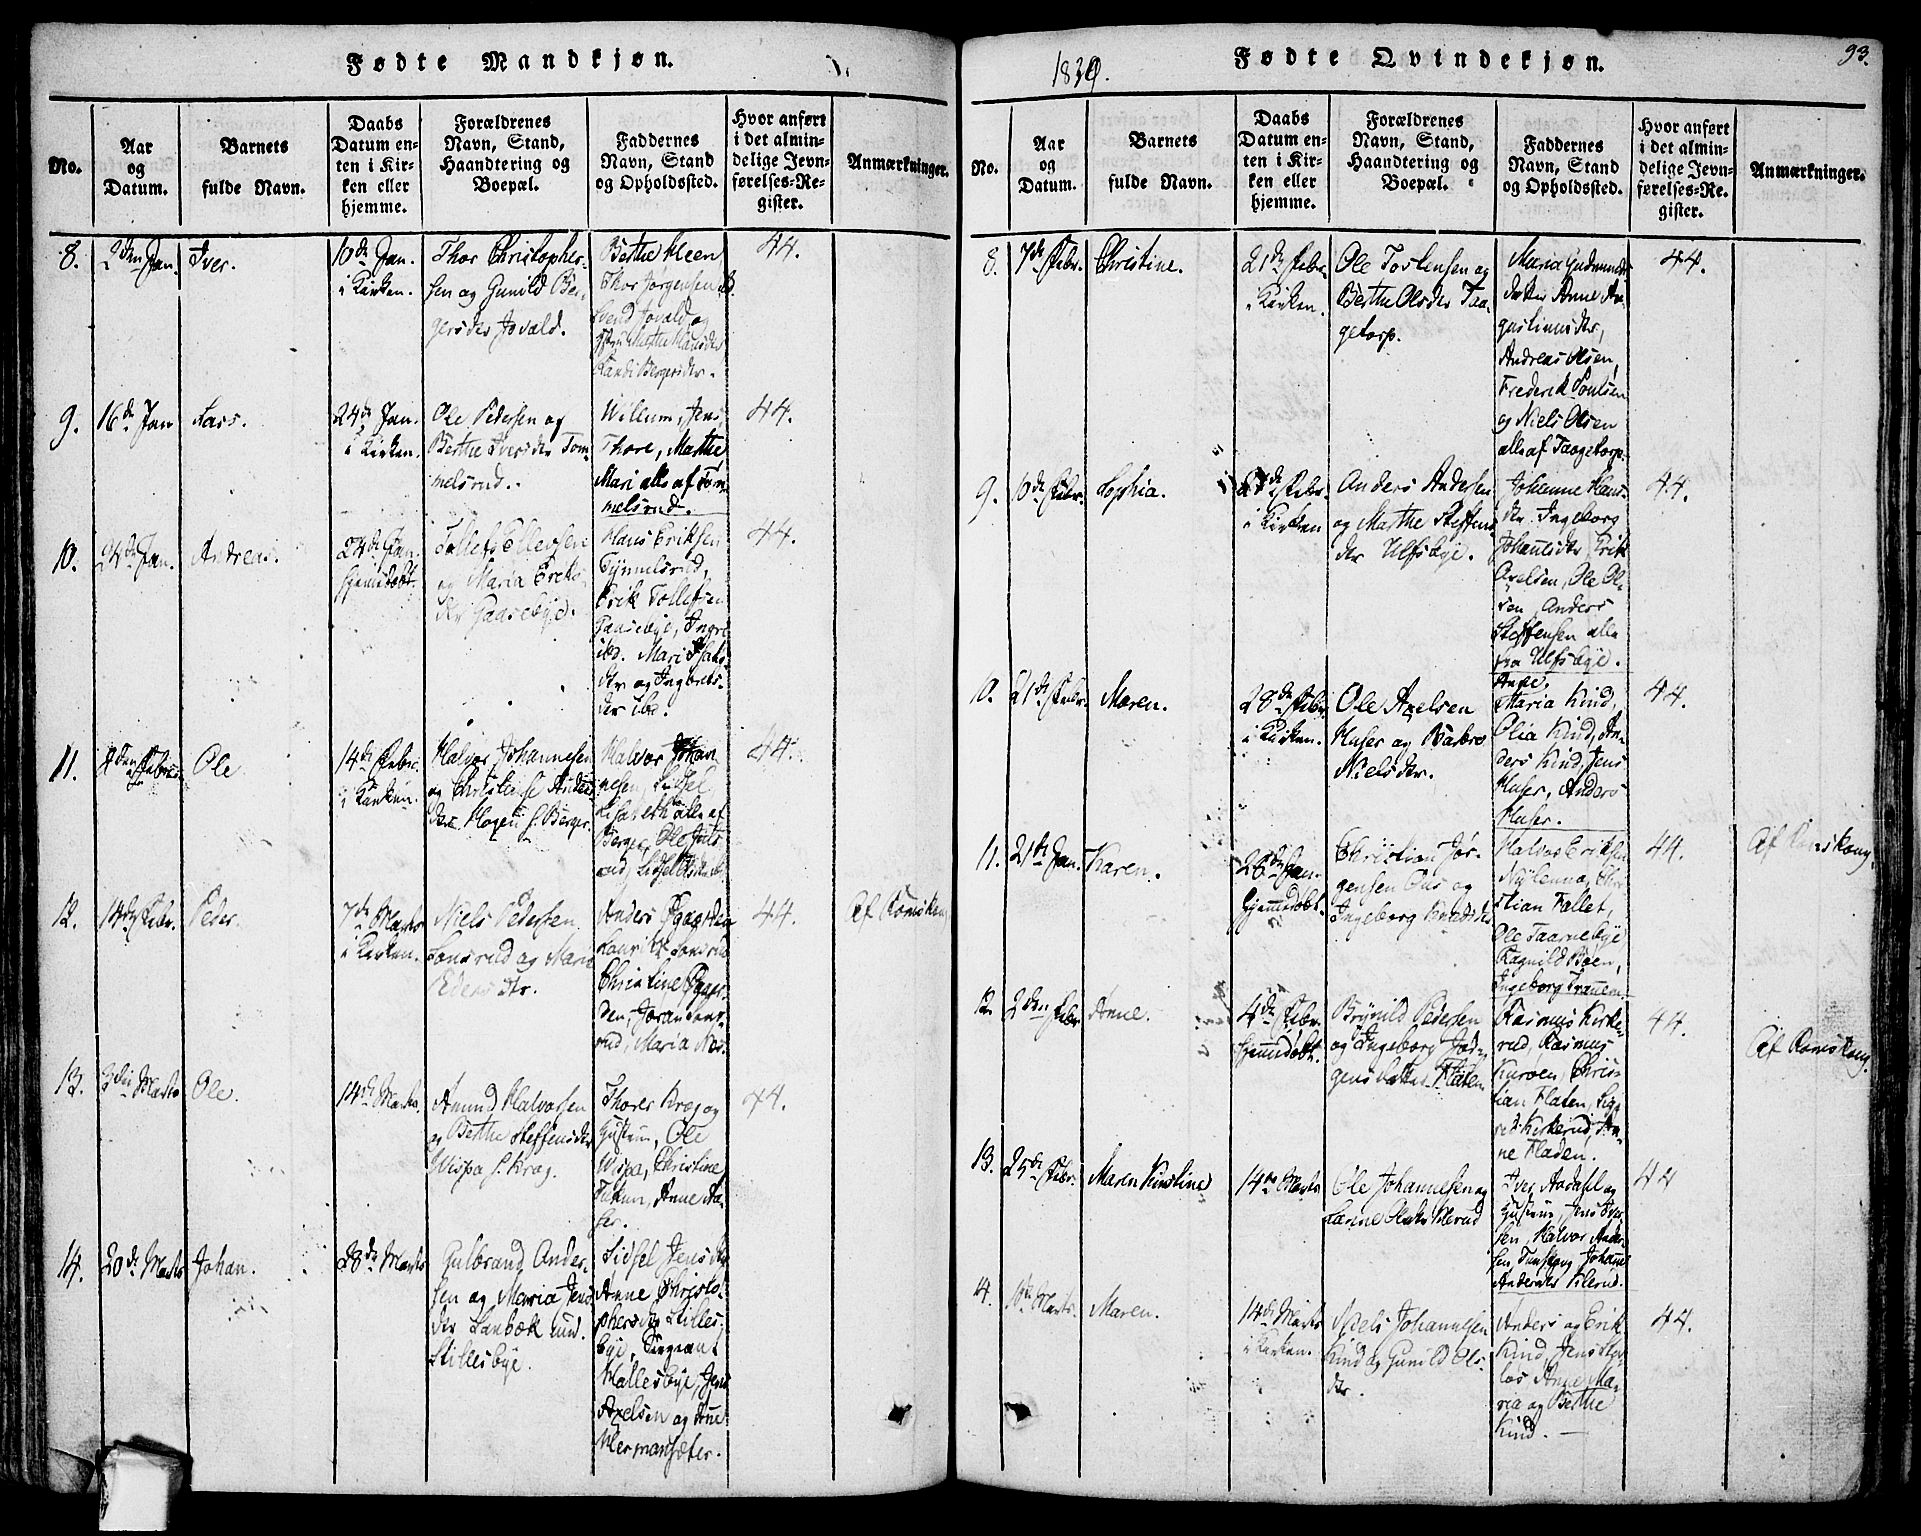 Fødte Mandkjøn.
No.
Aar
og
Datum.
Barnets
fulde Navn.
Daabs
Datum en-
ten i Kir-
ken eller
hjemme.
Forældrenes
Navn, Stand,
Haandtering og
Boepæl.
Faddernes
Navn, Stand
og Opholdssted.
Hvor anført
i det almin-
delige Jevn-
førelses-Re-
gister.
Anmærkninger.
8.
2den Jan.
Iver.
10de Jan.
i Kirken.
Thor Christopher-
sen og Gunild Ber-
gersdr
Berthe Kleen
Thor Jørgensen
44.
9.
16de Jan
Lars.
24de Jan.
i Kirken.
Ole Pedersen og
Berthe Iversdr Tom-
melsrud.
Willum, Jens
Thore, Marthe
Mari alle af Tom-
melsrud.
44.
10.
24de Jan.
Andreas.
24de Jan.
hjemmedøbt.
Tollef Ellevsen
og Maria Eriks-
dr Gaasebye.
Hans Eriksen
Tømmelsrud,
Erik Tollefsen
Gaasebye, Ingre
ibd. Mari
dr og Ingebrets-
dr ibd.
44.
11.
Febr.
Ole
14de Febr.
i Kirken.
Halvor Johannesen
og Christense
Halvor Johan-
nesen, Sidsel,
Lisabeth alle af
Berger, Ole
44.
12.
14de Febr.
Peder.
7de Marts
i Kirken.
Niels Pedersen
og Marie
Pedersdr.
Anders
Christine
den, Joran
rud, Maria
44.
Af Romskou
13.
3die Marts
Ole.
14de Marts.
Amund Halvorsen
og Berthe Steffensdr
Wispa f. Krog.
Thorer Krog og
Hustru, Ole
Wispa, Christine
Anne
44.
14.
20de Marts
Johan.
28de Marts
Gulbrand Ander-
sen og Maria Jens
dr
Stillesbye.
Sidsel Jensdr
Anne Christo-
phersdr Stilles-
bye, Sergeant
Hallesbye, Jens
Axelsen og Ane
Hermansæter.
1830.
Fødte Qvindekjøn.
93.
No.
Aar
og
Datum.
Barnets
fulde Navn.
Daabs
Datum en-
ten i Kir-
ken eller
hjemme.
Forældrenes
Navn, Stand,
Haandtering og
Boepæl.
Faddernes
Navn, Stand
og Opholdssted.
Hvor anført
i det almin-
delige Jevn-
førelses-Re-
gister.
Anmærkninger.
8.
7de Febr.
Christine.
21de Febr.
i Kirken.
Ole Torstensen og
Berthe Olsdr Taa-
getorp.
Maria Gudmunds-
datter Anne Au-
gustinusdr,
Andreas Olsen,
Frederik Poulsen
og Niels Olsen
alle af Taagetorp.
44.
9.
10de Febr.
Sophia.
Febr.
i Kirken
Anders Andersen
og Marthe Steffens
dr Ulfsbye.
Johanne Hans-
dr Ingeborg
Johannsdr, Erik
Axelsen, Ole Ol-
sen, Anders
Steffensen alle
fra Ulfsbye.
44.
10.
21de Febr.
Maren.
28de Febr.
i Kirken.
Ole Axelsen
Huser og Barbro
Nielsdr.
Anne
Maria Kind,
Olia Kind, An-
ders Kind, Jens
Huser, Anders
Huser.
44.
11.
21de Jan.
Karen.
26de Jan.
Hjemmedøbt.
Christian Jør-
gensen Ous og
Ingeborg Knudsdr
Halvor Eriksen
Nylenna, Chri-
stian Fallet,
Ole Taarnebye
Ragnild Boen,
Ingeborg
44.
Af Romskoug
12.
2den Febr
Anne.
4de Febr.
hjemmedøbt.
Brynild Pedersen
og Ingeborg Jør-
gensdatter Flaten
Rasmus Kirke-
rud, Rasmus
Kurøen, Chris-
tian Flaten, Sig-
ret Kirkerud, An-
ne Fladen.
44.
Af Romskoug
13.
25de Febr.
Maren Kirstine
14de Marts
Ole Johannesen og
Iver Aadahl og
Hustrue, Jens Iver-
sen, Halvor Ander-
sen, Johanne
Andersdr
44
14.
Marts.
Maren.
14de Marts
i Kirken.
Niels Johannesen
Kind og Gunild Ols-
dr.
Anders og Erik
Kind, Jens
Anne Ma-
ria og Berthe
Kind.
44.